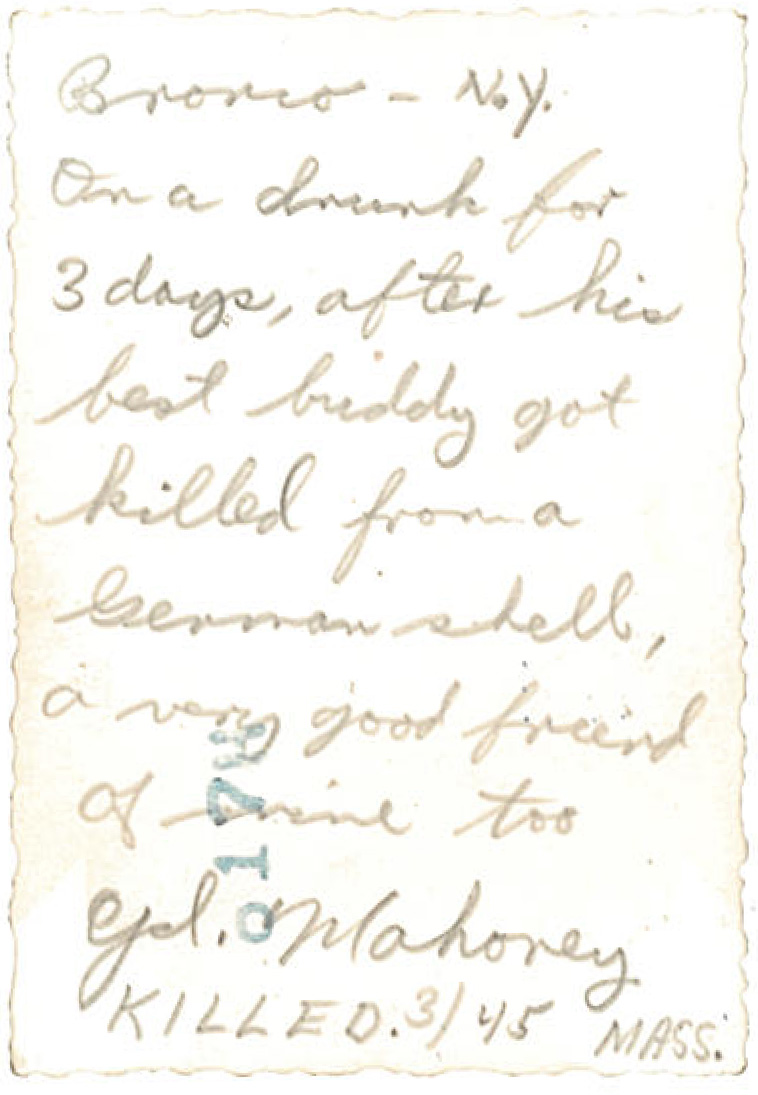 Bronco - N.Y.
On a drunk for
3 days, after his
best buddy got
killed from a
German shell,
a very good friend
of mine too
Cpl. Mahoney
KILLED. 3/45 MASS.
017